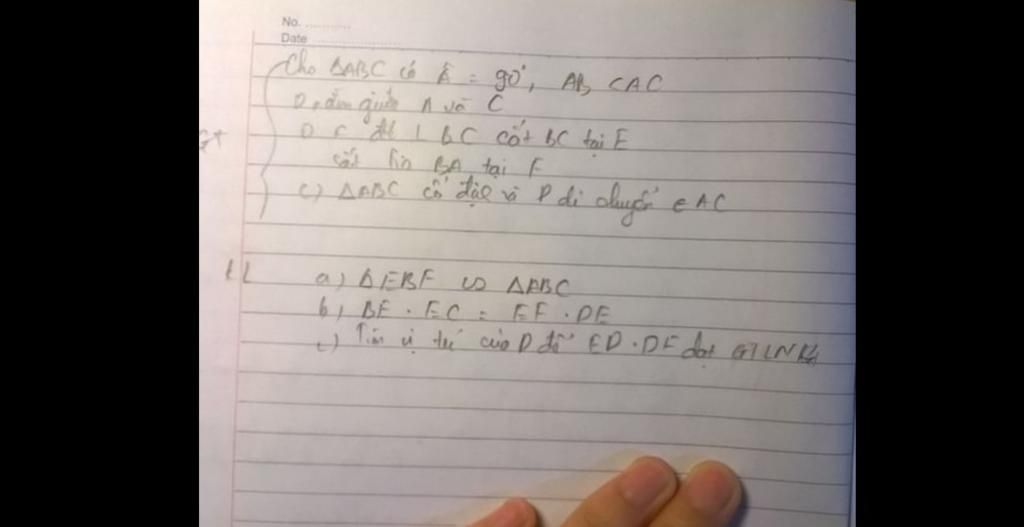 No.
Date
Cho ΔABC có Â = 90°, AB < AC
D nằm giữa A và C
D ∈ đt ⊥ BC cắt BC tại E
cắt tia BA tại F
c) ΔABC cố định và D di chuyển ∈ AC
GT
KL a) ΔEBF ∽ ΔABC
b) BE . EC = EF . DE
c) Tìm vị trí của D để ED . DF đạt GTLN